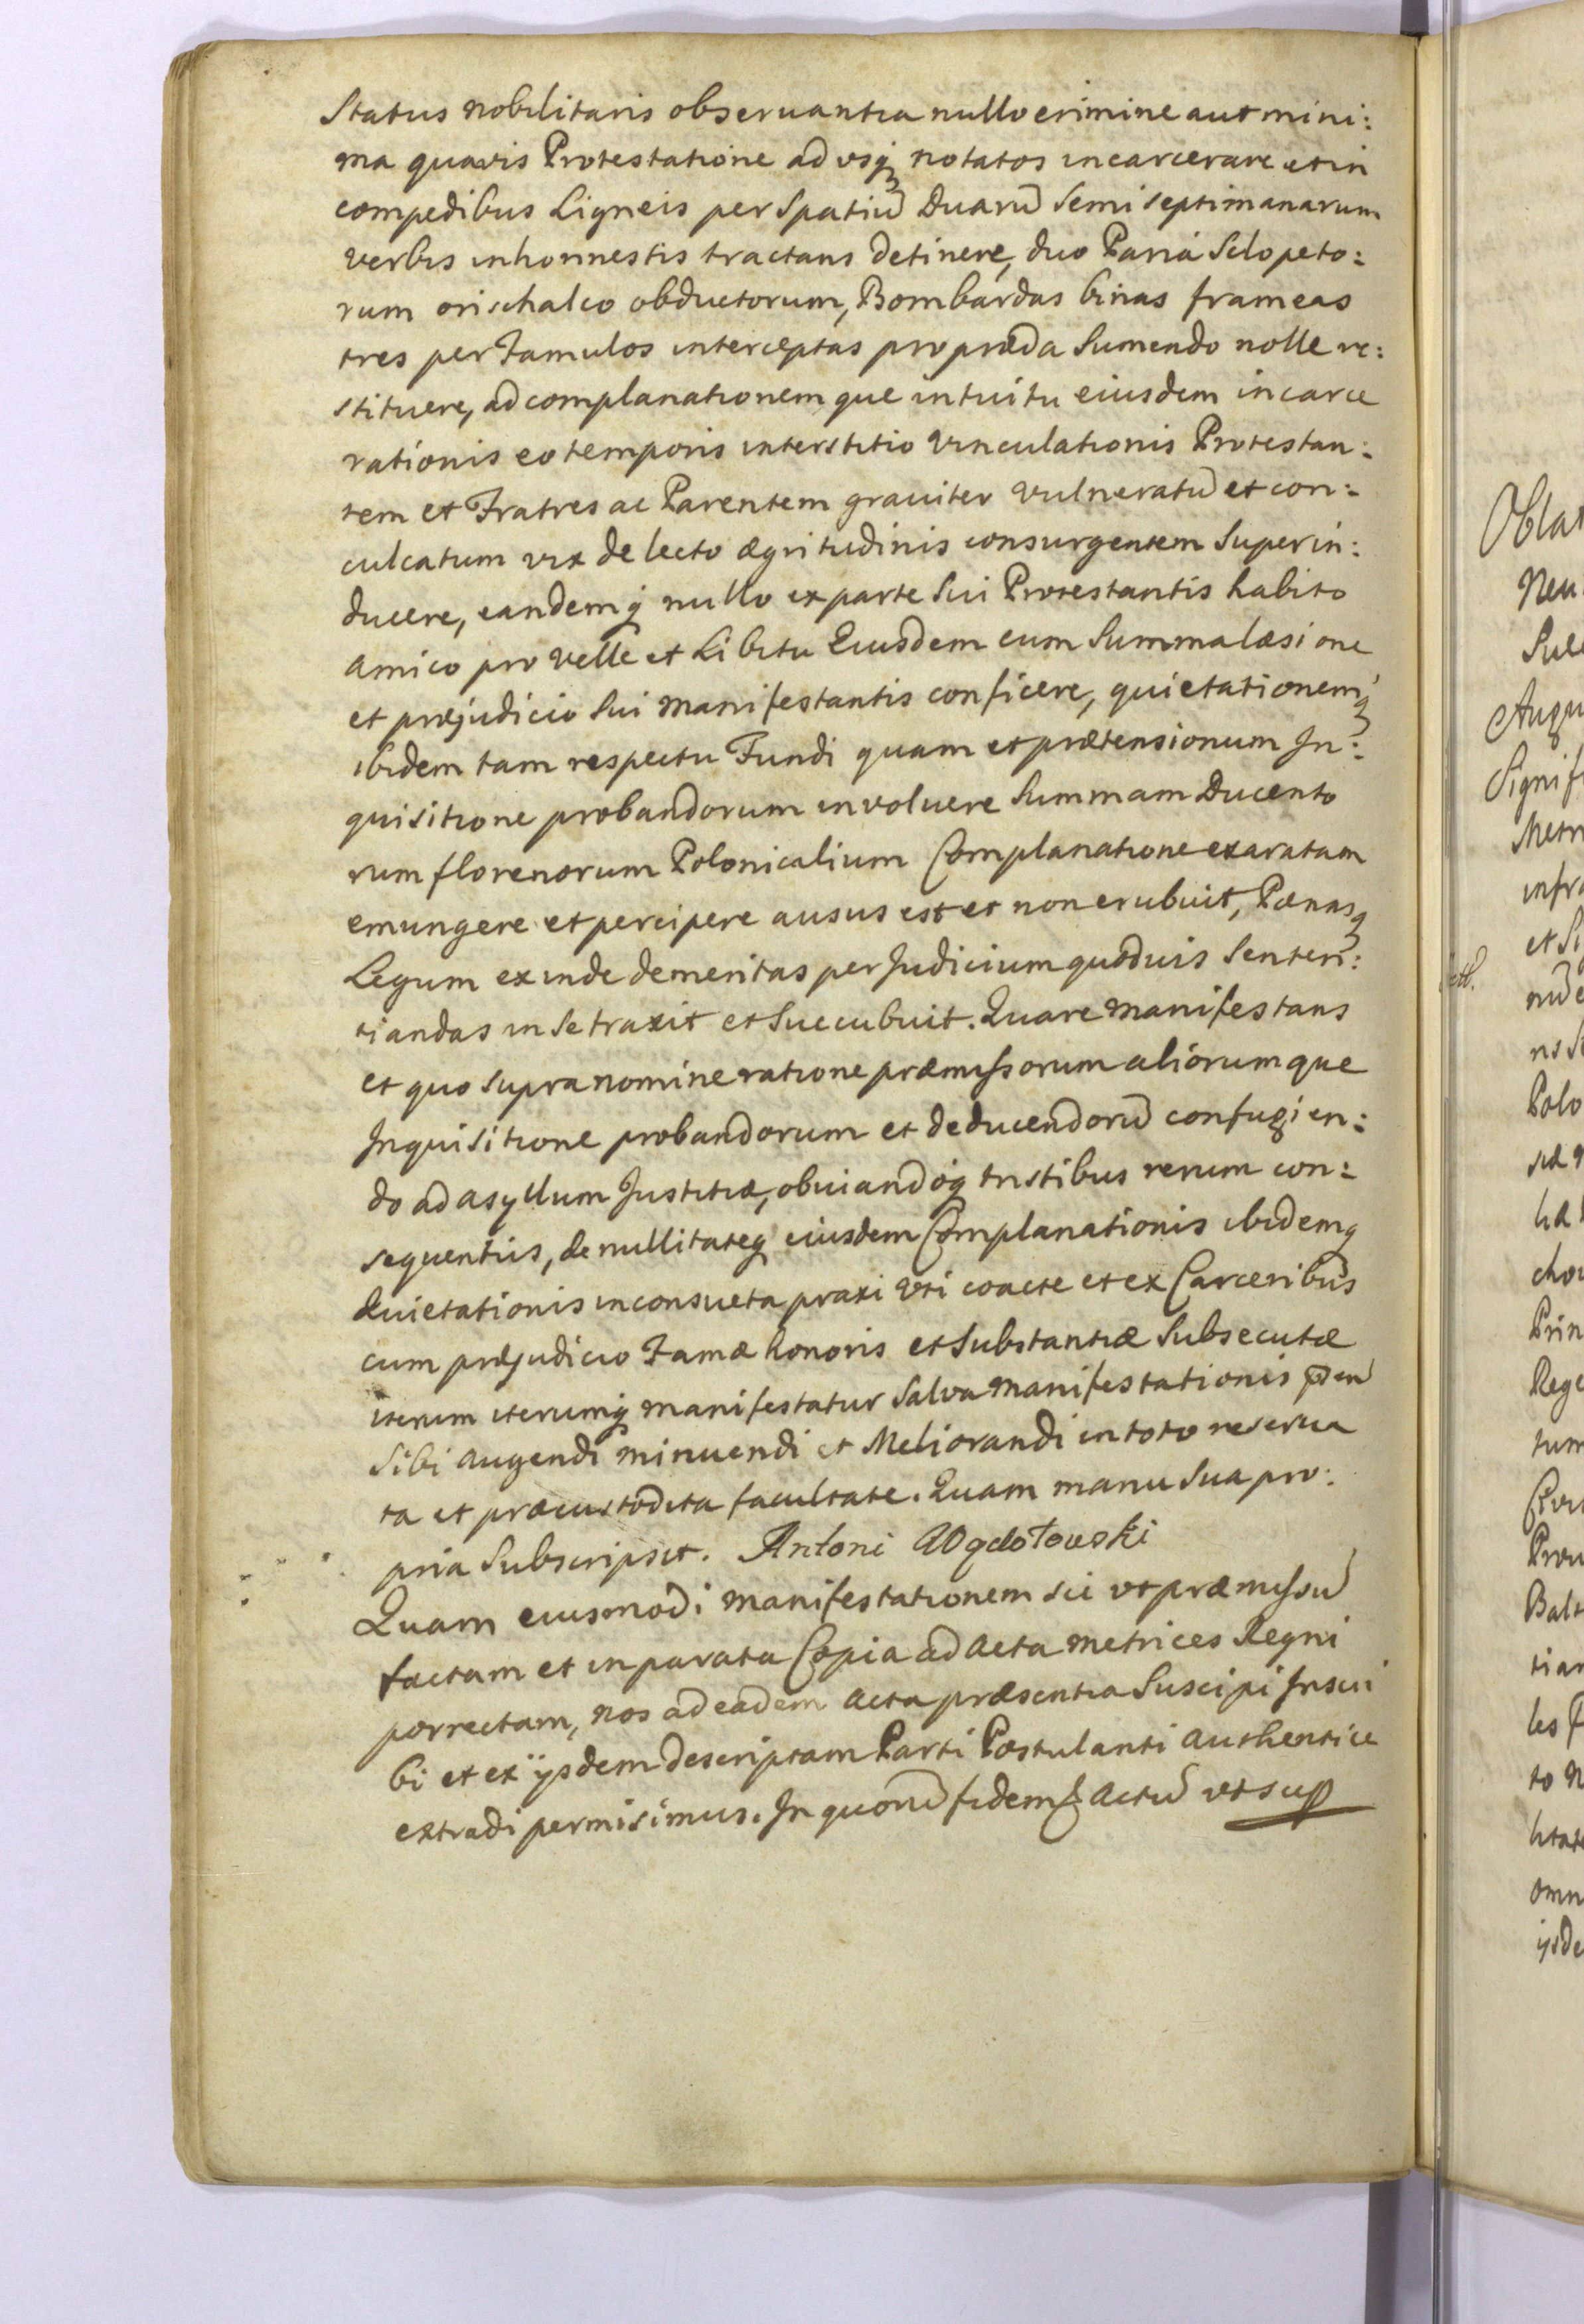 Status nobilitaris obseruantia nullo crimine aut mini:
ma quavis Protestatione ad vsq₃ notatos incarcerare et in
compedibus Ligneis per Spatiũ Duarũ Semi septimanarum
verbis inhonnestis tractans detinere, duo Paria Sclopeto:
rum orischalco obductorum, Bombardas binas frameas
tres per Famulos interceptas pro præda Sumendo nolle re:
stituere, ad complanationem que intuitu eiusdem incarce
rationis eo temporis interstitio Vinculationis Protestan:
tem et Fratres ac Parentem grauiter vulneratũ et con:
culcatum vix de lecto ægritudinis consurgentem Superin:
ducere, eandemq nullo ex parte Sui Protestantis habito
amico pro velle et Libitu Eiusdem cum Summa læsione
et præjudicio Sui Manifestantis conficere, quietationemq₃
ibidem tam respectu Fundi quam et prætensionum In:
quisitione probandorum involuere Summam Ducento
rum florenorum Polonicalium Complanatione exaratam
emungere et percipere ausus est et non erubuit, Pænasq₃
Legum exinde demeritas per Judicium quoduis Senten:
tiandas in Se traxit et Succubuit. Quare Manifestans
et quo supra nomine ratione præmissorum aliorumque
Inquisitione probandorum et deducendorũ confugien:
do ad asyllum Justitiæ, obuiandoq tristibus rerum con:
sequentiis, de nullitateq eiusdem Complanationis ibidemq
Quietationis inconsueta praxi vti coacte et ex Carceribus
cum præjudicio Famæ honoris et Substantiæ Subsecutæ
iterum iterumq manifestatur Salva Manifestationis
Sibi augendi minuendi et Meliorandi in toto reserua
ta et præcustodita facultate. Quam manu Sua pro:
pria Subscripsit. Antoni
Quam eiusmodi Manifestationem sic vt præmissũ
factam et in parata Copia ad Acta Metrices Regni
porrectam, nos ad eadem Acta præsentia Suscipi Inscri
bi et ex ijsdem descriptam Parti Postulanti Authentice
extradi permisimus. In quorũ fidem Actũ vt sup
Oblat
Neu
Sule
Augu
Signif
Metri
infra
et Si
Polo
Prin
Rege
tum
Balt
tian
les
to N
omn
ijsde